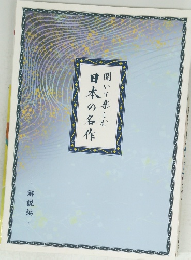 聞いて楽しむ
日本の名作
解説編